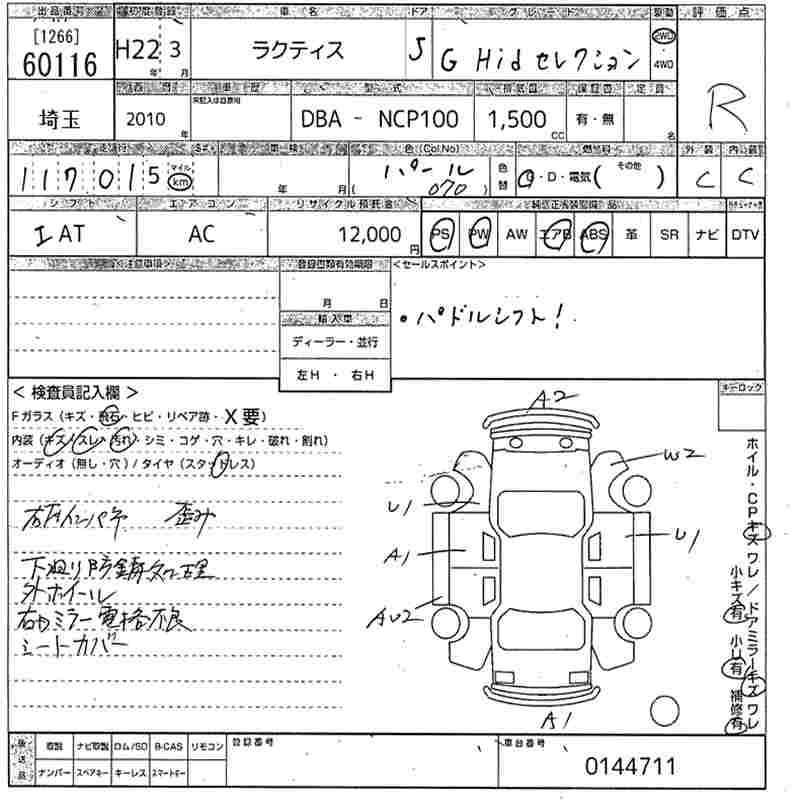 出品番号 初度登録 車名 ドア グレード 駆動 評価点
[1266]
60116 H22年 3月 ラクティス 5 G Hidセレクション 2WD 4WD R
車歴 型式 排気量 定員
埼玉 2010年 DBA - NCP100 1,500cc 有・無 名
車検 色(Col.No) 燃料 外装 内装
117,015 マイル km 年 月 パール 070 色替 G・D・電気( その他 ) C C
シフト エアコン リサイクル預託金 純正装備品
IAT AC 12,000円 PS PW AW エアB ABS 革 SR ナビ DTV
注意事項 登録書類有効期限 <セールスポイント>
月 日
輸入車 ・パドルシフト!
ディーラー・並行
左H ・ 右H
<検査員記入欄> キーロック
Fガラス (キズ・飛石・ヒビ・リペア跡・X要)
内装 (キズ・スレ・汚れ・シミ・コゲ・穴・キレ・破れ・割れ)
オーディオ (無し・穴) / タイヤ (スタッドレス)
右左インパネ 歪み
下廻り防錆処理
外ホイール
右ドミラー電格不良
シートカバー
A2
W2
U1
A1
U1
AU2
A1
ホイル・CPキズ ワレ/ドアミラーキズ ワレ
小キズ有 小U有 補修有
後送品 取説 ナビ取説 ロム/SD B-CAS リモコン 登録番号 車台番号
ナンバー スペアキー キーレス スマートキー 0144711